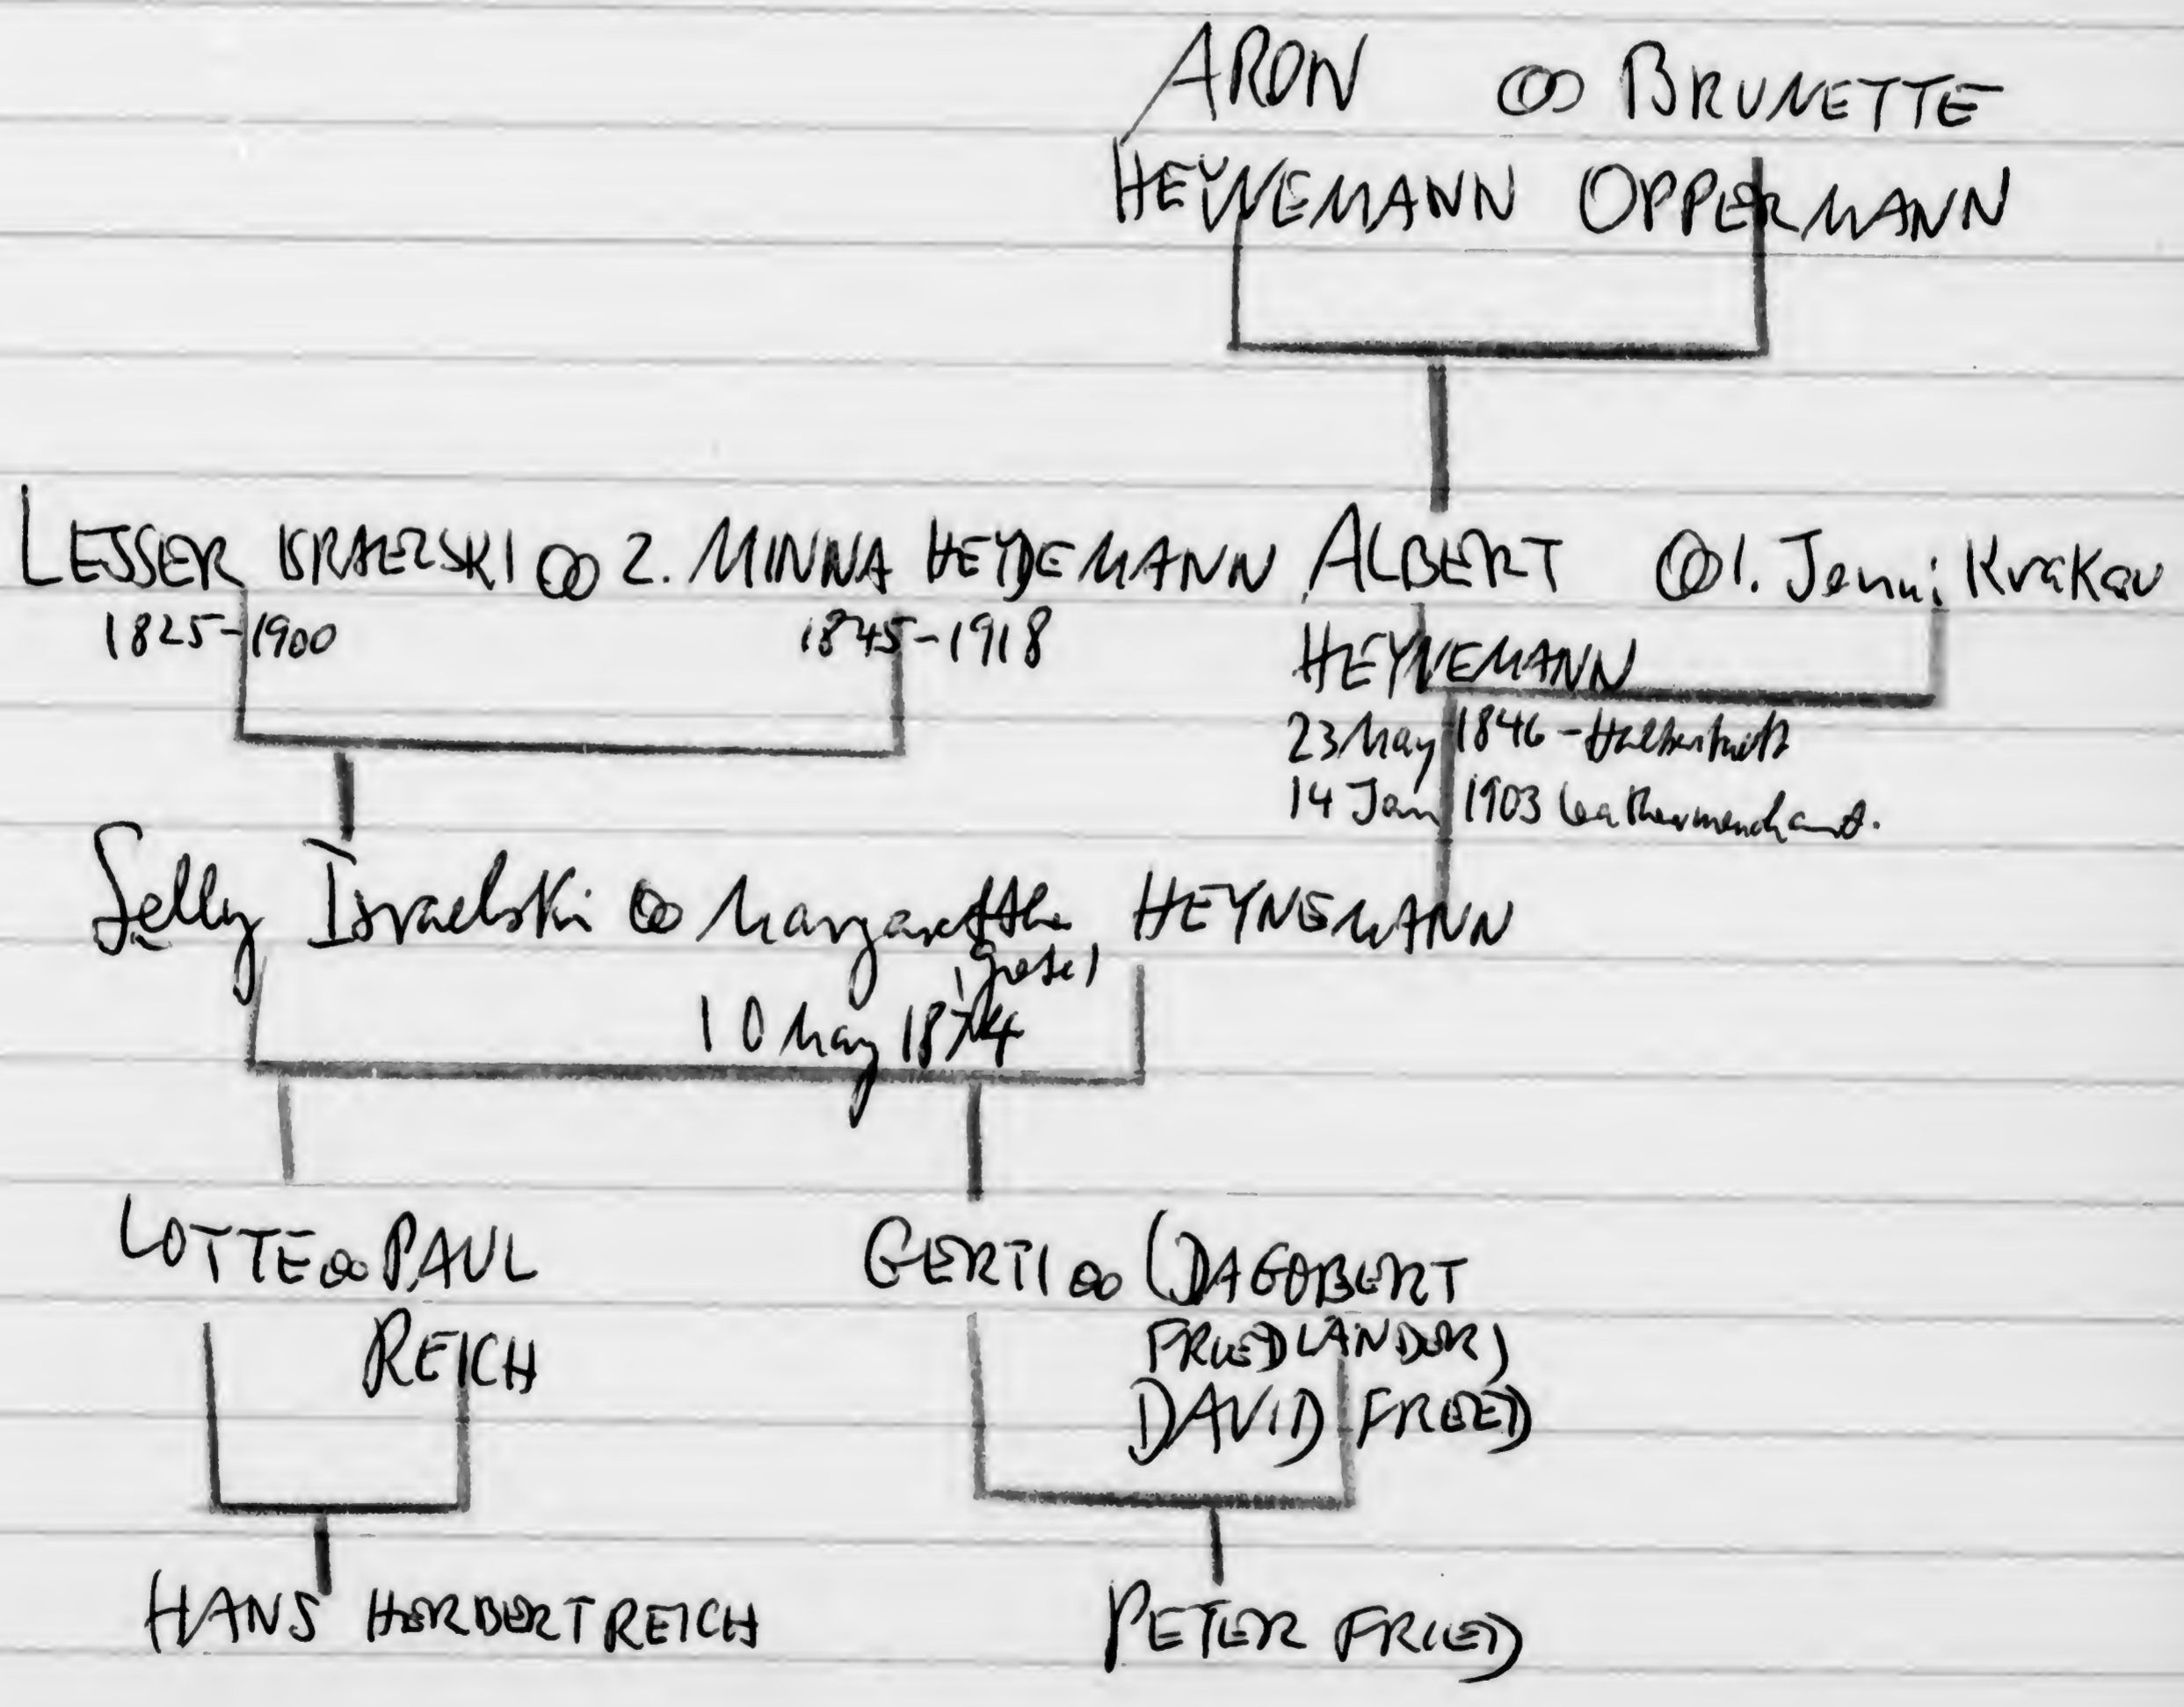 ARON ∞ BRUNETTE
HEYNEMANN OPPERMANN
LESSER ISRAELSKI ∞ 2. MINNA HEYDEMANN ALBERT ∞ 1. Jenni Krakau
1825-1900 1845-1918 HEYNEMANN
23 May 1846 - Halberstadt
14 Jan 1903 leathermerchant.
Selly Israelski ∞ Margarethe HEYNEMANN
(Gretel)
10 May 1874
LOTTE ∞ PAUL GERTI ∞ (DAGOBERT
REICH FRIEDLÄNDER)
DAVID FRIED
HANS HERBERT REICH PETER FRIED